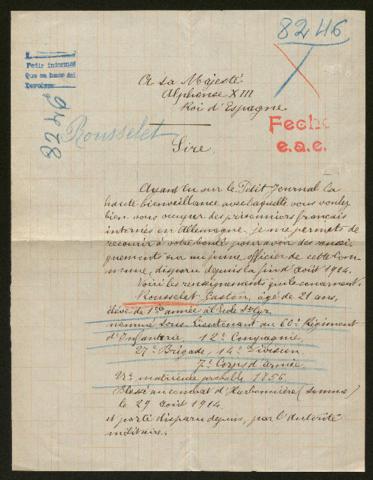 8246
1.
Pedir informes
Que se hace del
8246
Rousselet
A sa Majesté
Alphonse XIII
Roi d'Espagne
Fecho
e.a.e.
Sire,
Ayant lu sur le Petit Journal la
haute bienveillance avec laquelle vous voulez
bien vous occuper des prisonniers français
internés en Allemagne, je me permets de
recourir à votre bonté pour avoir des rensei-
gnements sur un jeune officier de cette com-
mune, disparu depuis la fin d'août 1914.
Voici les renseignements qui le concernent.
Rousselet Gaston, âgé de 21 ans,
élève de 1re année à l'Ecole St Cyr
nommé Sous-Lieutenant au 60e Régiment
d'Infanterie, 12e Compagnie,
27e Brigade, 14e Division
7e Corps d'armée
No matricule probable 1856.
Blessé au combat d'Harbonnière (Somme)
le 29 août 1914
et porté disparu depuis, par l'autorité
militaire.